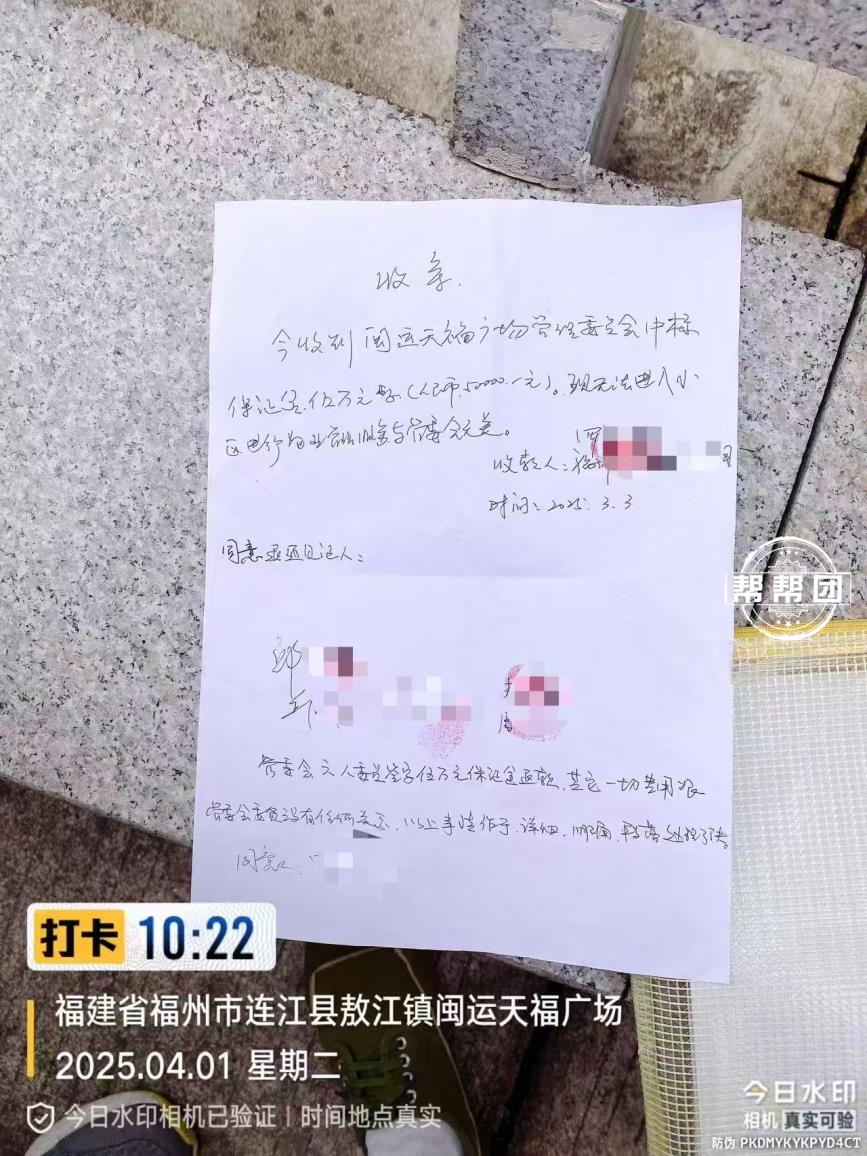 收条.
今收到闽运天福广场管理委员会中标
保证金.伍万元整(人民币.50000.一元)。现无法进入小
区进行物业管理服务与管委会无关。
收款人:福
时间:2025.3.3
同意退还见证人:
邱
管委会六人委员签字伍万元保证金退款.其它一切费用跟
管委会委员没有任何关系.以上事情作于.详细.明确.
同意
帮帮团
打卡 10:22
福建省福州市连江县敖江镇闽运天福广场
2025.04.01 星期二
今日水印相机已验证 | 时间地点真实
今日水印
相机 真实可验
防伪 PKDMYKYKPYD4CT